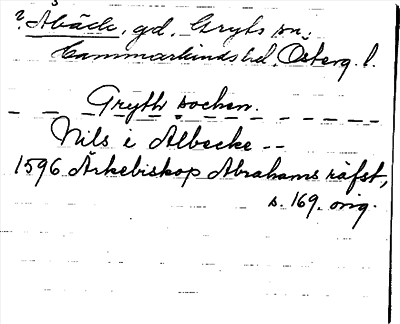 ? Åbäck, gd, Gryts sn,
Hammarkinds hd, Österg. l.
Gryth socken.
Nils i Albecke --
1596 Ärkebiskop Abrahams räfst,
s. 169. orig.